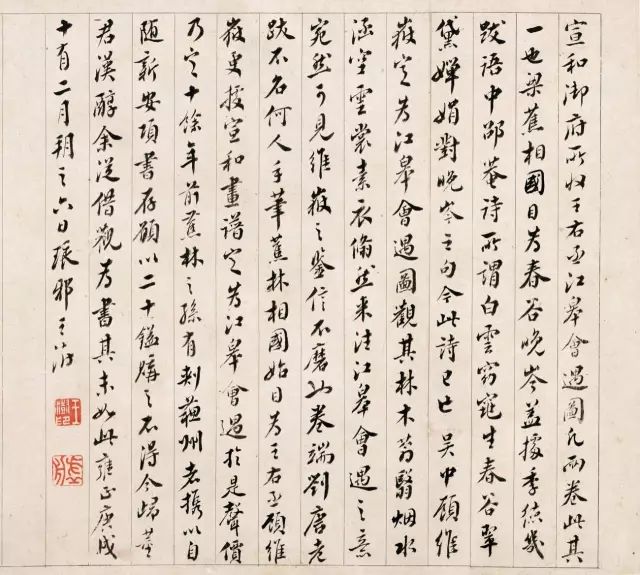 宣和御府所收王右丞江皋會遇圖凡兩卷此其
一也梁蕉相國目為春谷晚岑蓋據季德幾
跋語中邵菴詩所謂白雲窈窕生春谷翠
黛嬋娟對晚岑之句今此詩已亡吳中顧維
嶽定為江皋會遇圖觀其林木蓊翳烟水
涵空雲裳素衣翛然來往江皋會遇之意
宛然可見維嶽之鑒信不磨山卷端劉唐老
跋不名何人手筆蕉林相國始目為王右丞顧維
嶽更援宣和畫譜定為江皋會遇於是聲價
乃定十餘年前蕉林之孫有刺蘇州者攜以自
隨新安項書存願以二十鎰購之不得今歸董
君漢醇余從借觀為書其末如此雍正庚戌
十有二月朔之六日琅邪王澍
王澍印